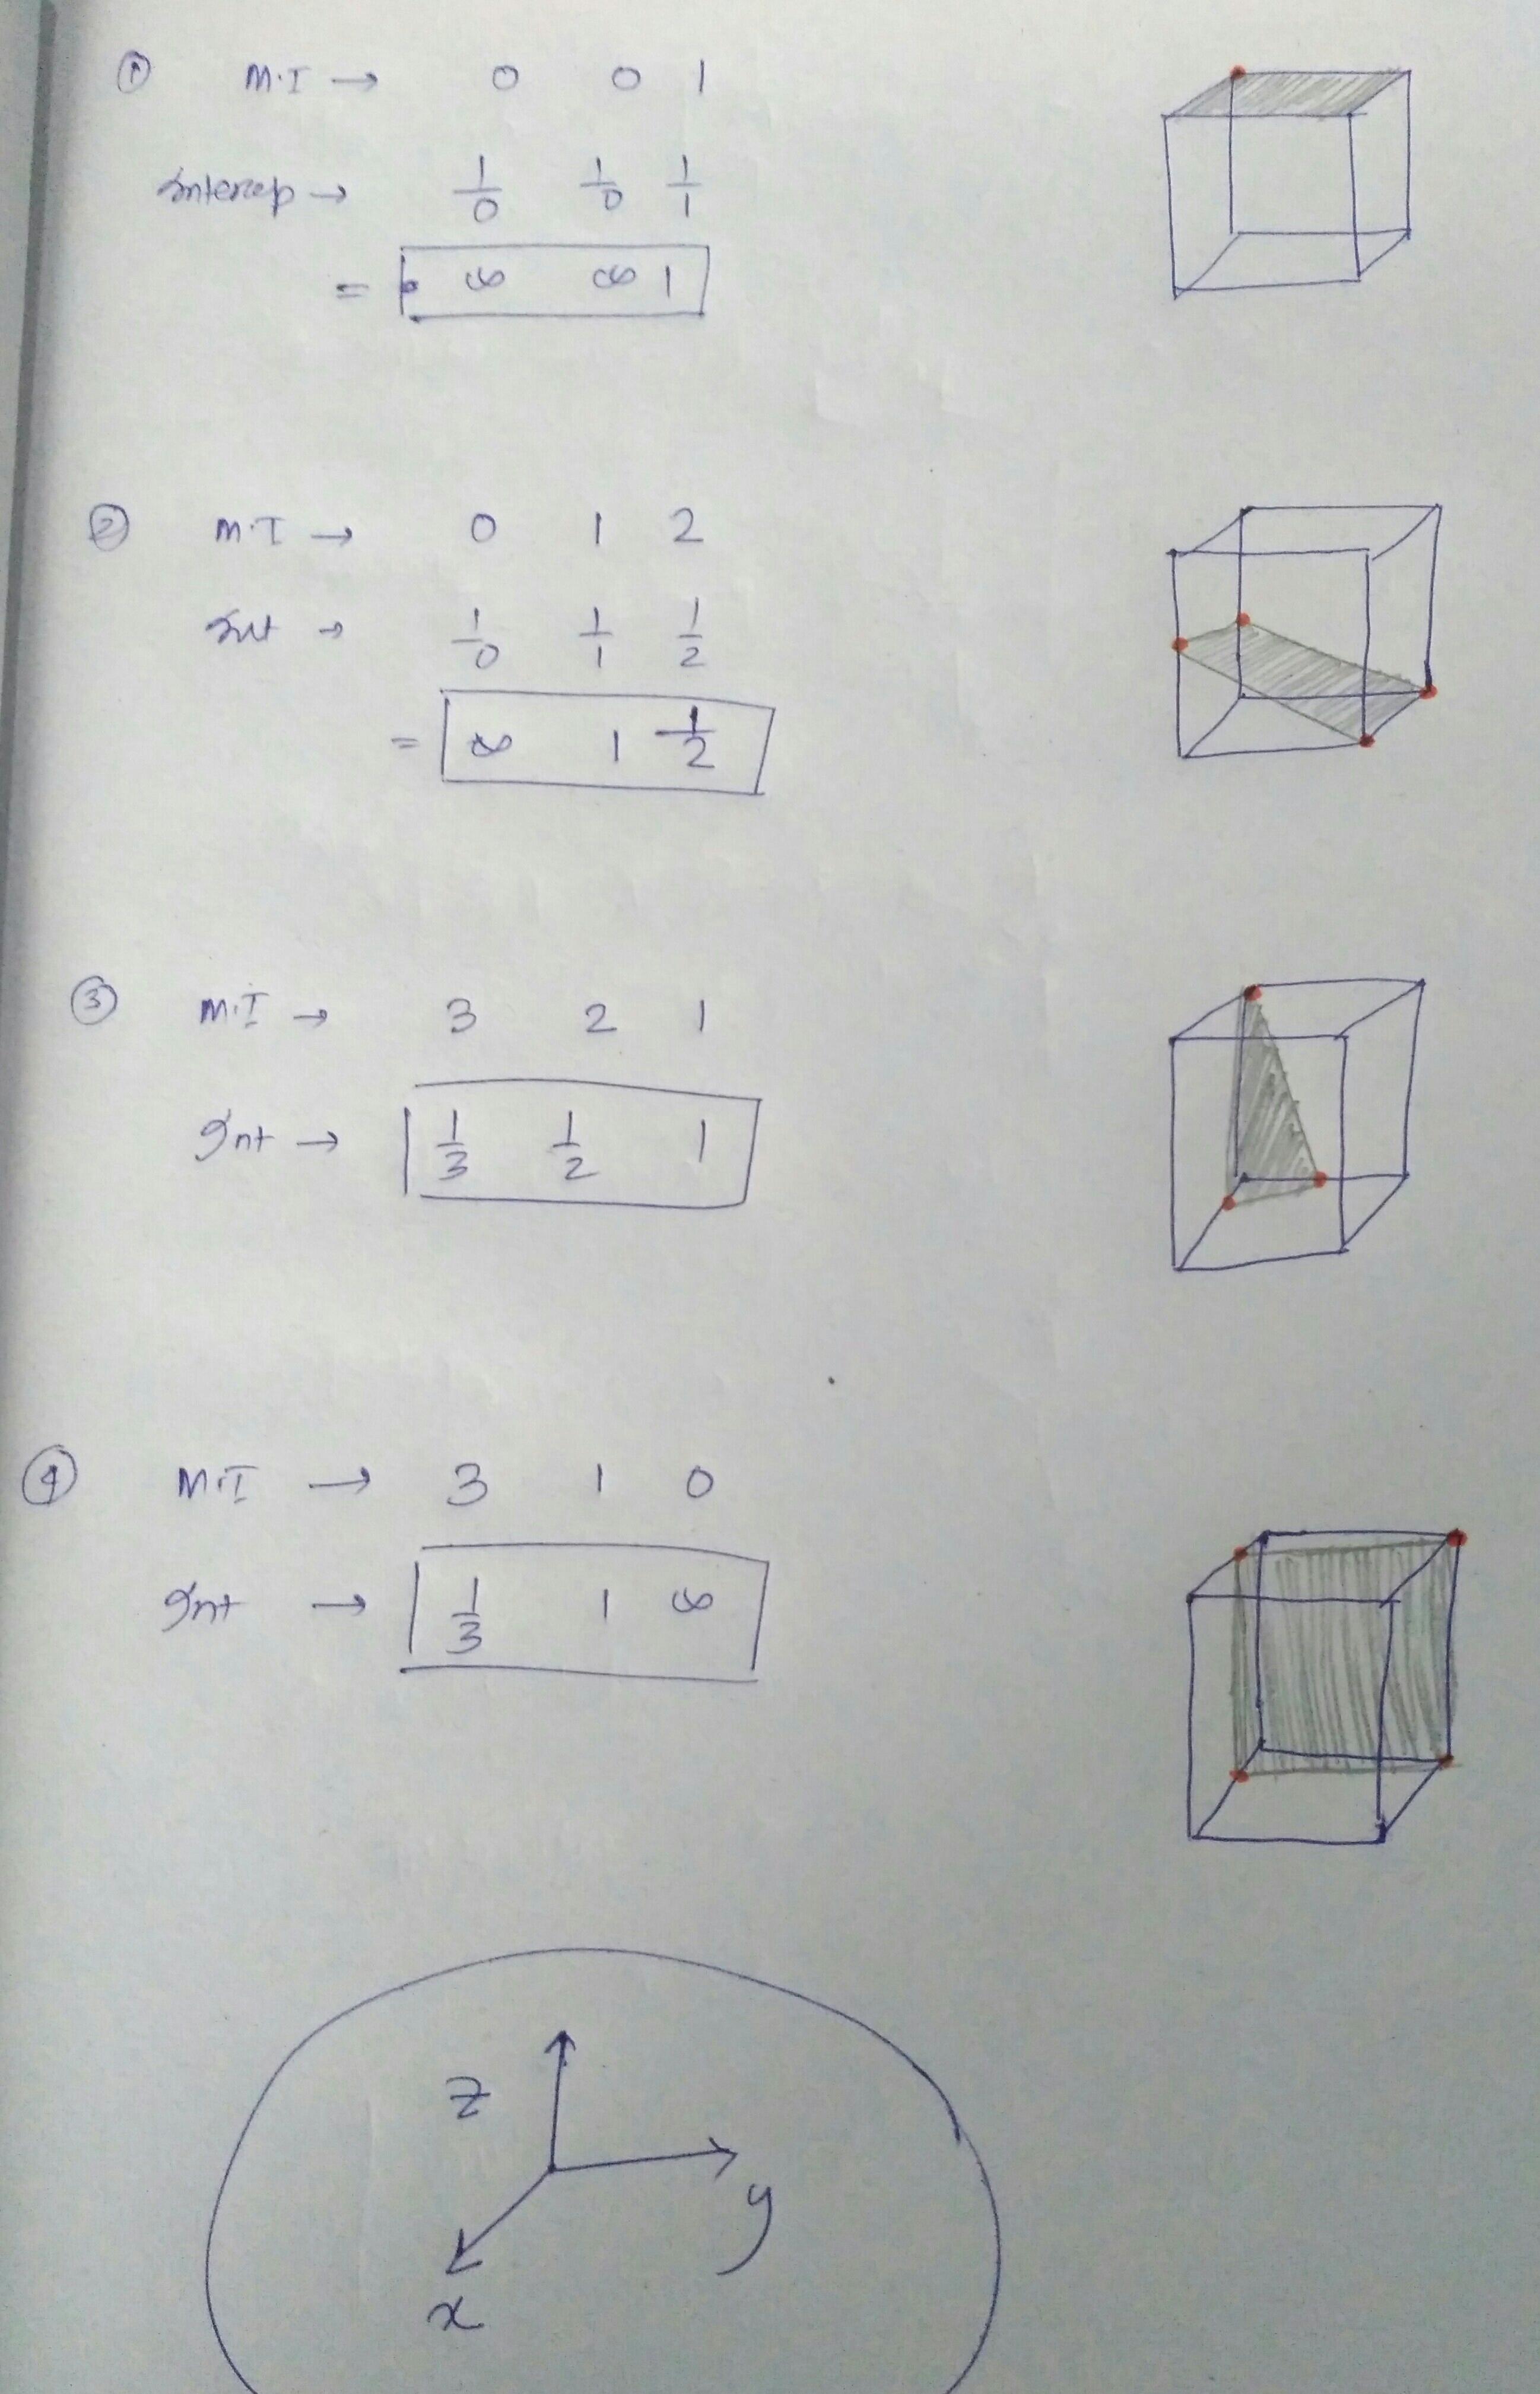 ① M.I → 0 0 1
Intercep → 1/0 1/0 1/1
= ∞ ∞ 1
② M.I → 0 1 2
Int → 1/0 1/1 1/2
= ∞ 1 1/2
③ M.I → 3 2 1
Int → 1/3 1/2 1
④ M.I → 3 1 0
Int → 1/3 1 ∞
z
y
x